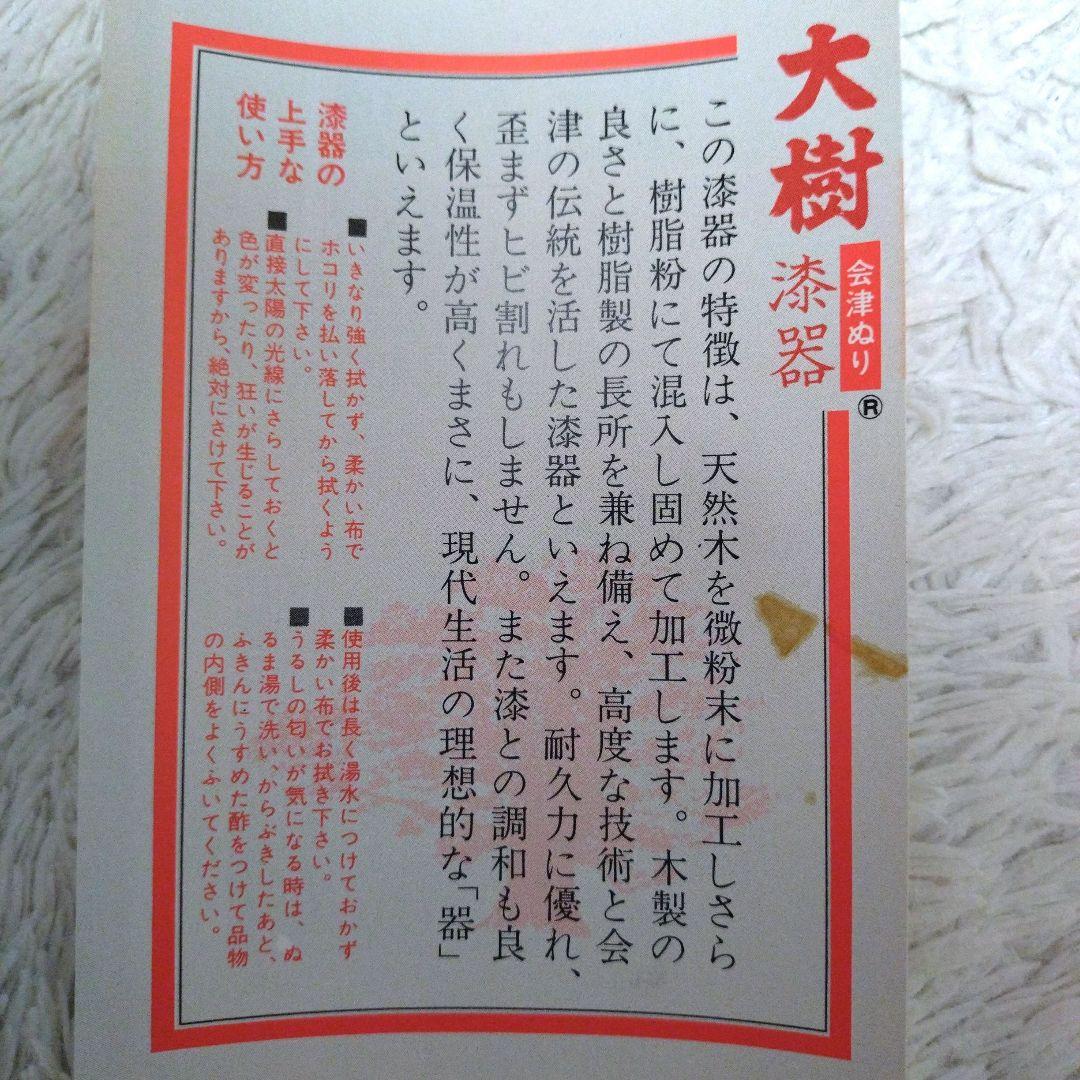 大樹
漆器
会津ぬり
®
この漆器の特徴は、天然木を微粉末に加工しさら
に、樹脂粉にて混入し固めて加工します。木製の
良さと樹脂製の長所を兼ね備え、高度な技術と会
津の伝統を活した漆器といえます。耐久力に優れ、
歪まずヒビ割れもしません。また漆との調和も良
く保温性が高くまさに、現代生活の理想的な「器」
といえます。
漆器の
上手な
使い方
■いきなり強く拭かず、柔かい布で
ホコリを払い落してから拭くよう
にして下さい。
■直接太陽の光線にさらしておくと
色が変ったり、狂いが生じることが
ありますから、絶対にさけて下さい。
■使用後は長く湯水につけておかず
柔かい布でお拭き下さい。
■うるしの匂いが気になる時は、ぬ
るま湯で洗い、からぶきしたあと、
ふきんにうすめた酢をつけて品物
の内側をよくふいてください。